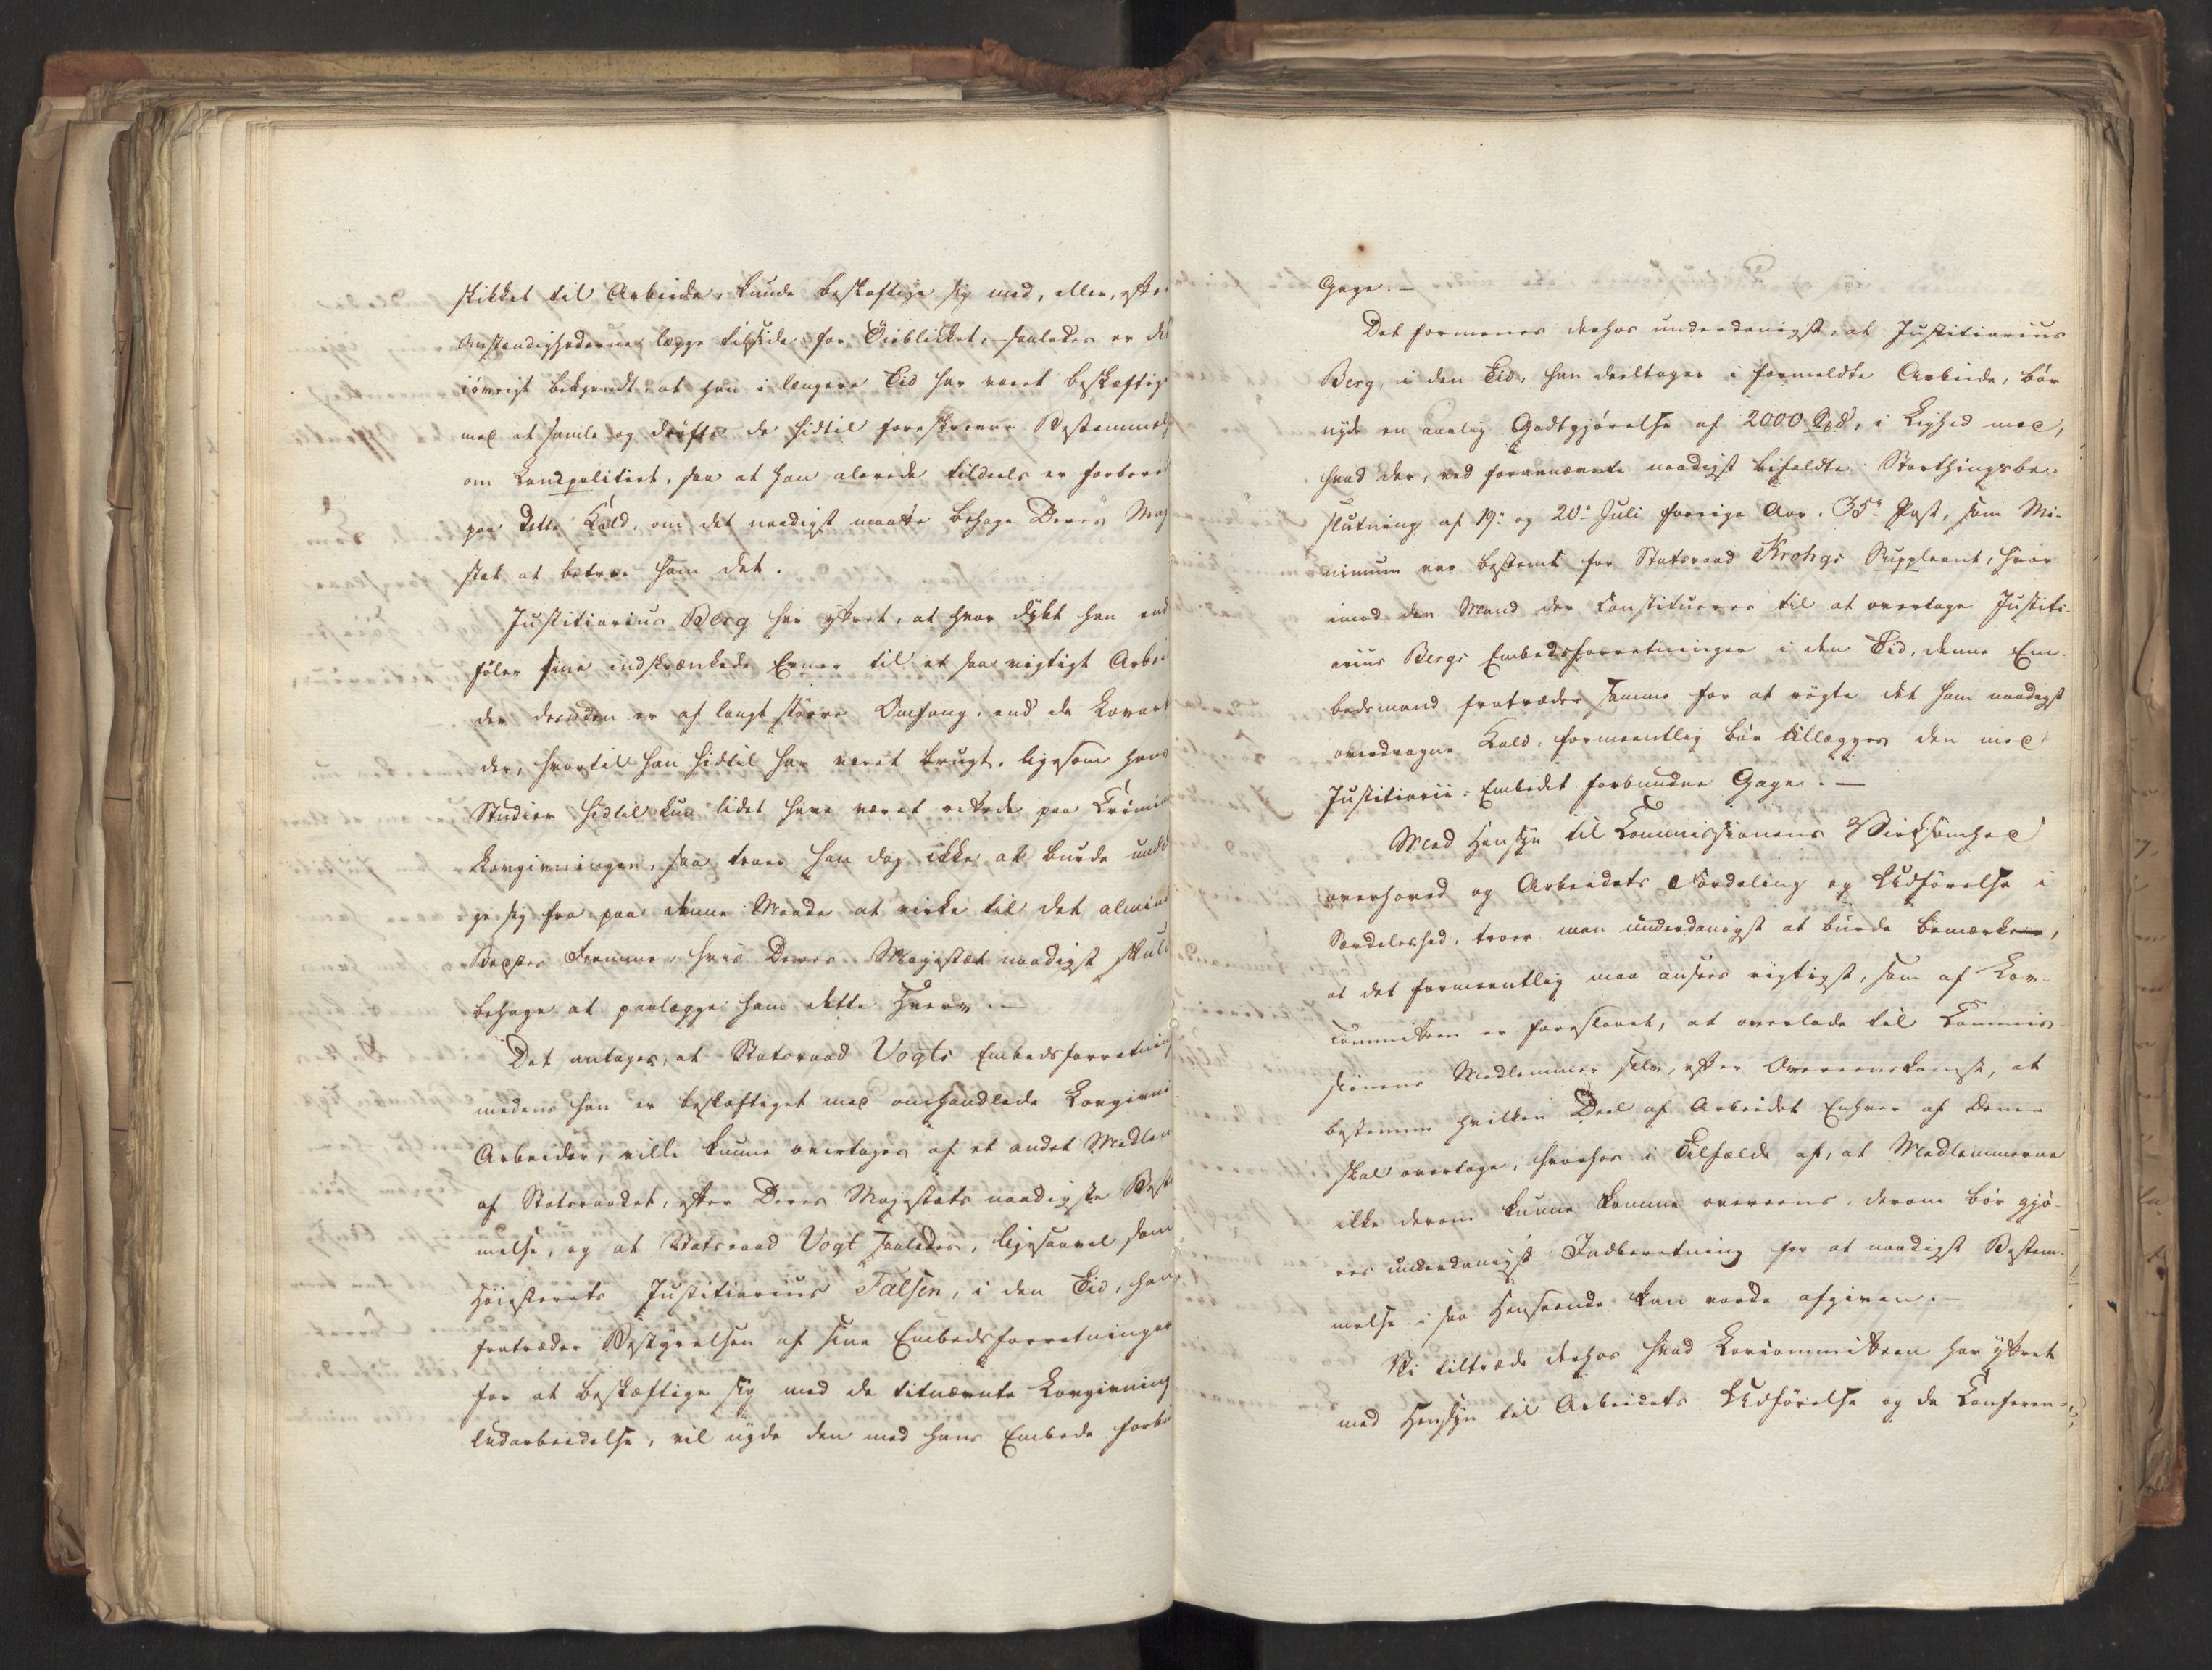 skikket til Arbeide, kunde beskæftige sig med, eller, efter
Omstændighederne lægge tilside for Øieblikket, – saaledes er det
iøvrigt bekjendt, at han i længere Tid har været beskæftig
med at samle og drøfte de hidtil foreskrevne Bestemmels
om Landpolitiet, saa at han alerede tildeels er forbere
paa dette Kald, om det naadigst maatte behage Deres Maj
stæt at betroe ham det.
Justitiarius Berg har yttret, at hvor dybt han end
føler sine indskrænkede Evner til et saa vigtigt Arbei
der desuden er af langt større Omfang, end de Lovarb
der, hvortil han hidtil har været brugt, ligesom hans
Studier hidtil kun lidet have været rettede paa Crimin
Lovgivningen, saa troer han dog ikke at burde undd
ge sig fra paa denne Maade at virke til det almind
Bestes Fremme, hvis Deres Majestæt naadigst skuld
behage at paalægge ham dette Hverv. –
Det antages, at Statsraad Vogts Embedsforretning
medens han er beskæftiget med omhandlede Lovgivni
Arbeider, ville kunne overtages af et andet Medlem
af Statsraadet, efter Deres Majestæts naadigste Beste
melse, og at Statsraad Vogt saaledes, ligesaavel som
Høiesterets Justitiarius Falsen, i den Tid, han
fratræder Bestyrelsen af sine Embedsforretninger
for at beskæftige sig med de titnævnte Lovgivning
Udarbeidelse, vil nyde den med hans Embede forbu
Gage. –
Det formenes derhos underdanigst, at Justitiarius
Berg, i den Tid, han deeltager i formeldte Arbeide, bør
nyde en aarlig Godtgjørelse af 2000 Spd, i Lighed med,
hvad der, ved forannævnte naadigst bifaldte Storthingsbe-
slutning af 19de og 20de Juli forrige Aar, 35te Post, som Mi-
nimum var bestemt for Statsraad Krohgs Suppleant, hvor
imod den Mand der constitueres til at overtage Justiti-
arius Bergs Embedsforretninger i den Tid, denne Em-
bedsmand fratræder samme for at røgte det ham naadigst
overdragne Kald, formeentlig bør tillægges den med
Justitiarii-Embedet forbundne Gage. –
Med Hensyn til Commissionens Virksomhed
overhoved og Arbeidets Fordeling og Udførelse i
Særdeleshed, troer man underdanigst at burde bemærke,
at det formeentlig maa ansees rigtigst, som af Lov-
committeen er foreslaaet, at overlade til Commis-
sionens Medlemmer selv, efter Overeenskomst, at
bestemme hvilken Deel af Arbeidet Enhver af Dem
skal overtage, hvorhos i Tilfælde af, at Medlemmerne
ikke derom kunne komme overeens, derom bør gjø-
res underdanigst Indberetning for at naadigst Bestem-
melse i saa Henseende kan vorde afgiven. –
Vi tiltræde derhos hvad Lovcommitteen har yttret
med Hensyn til Arbeidets Udførelse og de Conferen-